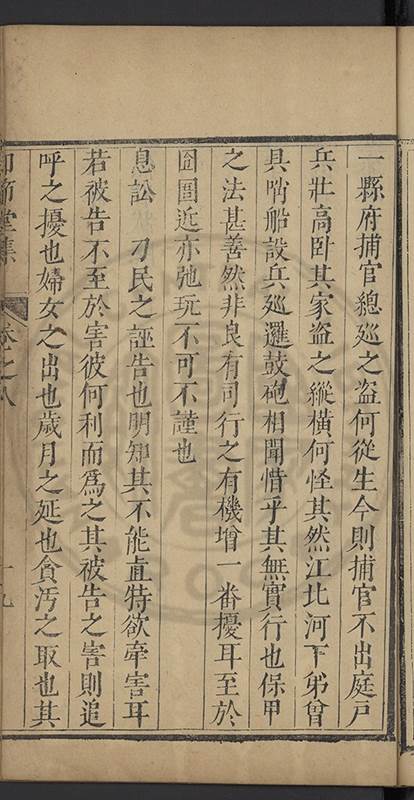 一縣府捕官總廵之盗何從生今則捕官不出庭戸
兵壯高卧其家盗之縱橫何怪其然江北河下弟曾
具哨船設兵廵邏鼓砲相聞惜乎其無實行也保甲
之法甚善然非良有司行之有機增一番擾耳至於
囹圄近亦弛玩不可不謹也
息訟 刁民之誣告也明知其不能直特欲牽害耳
若被告不至於害彼何利而爲之其被告之害則追
呼之擾也婦女之出也歲月之延也貪汚之取也其
堂集 卷之八 十九